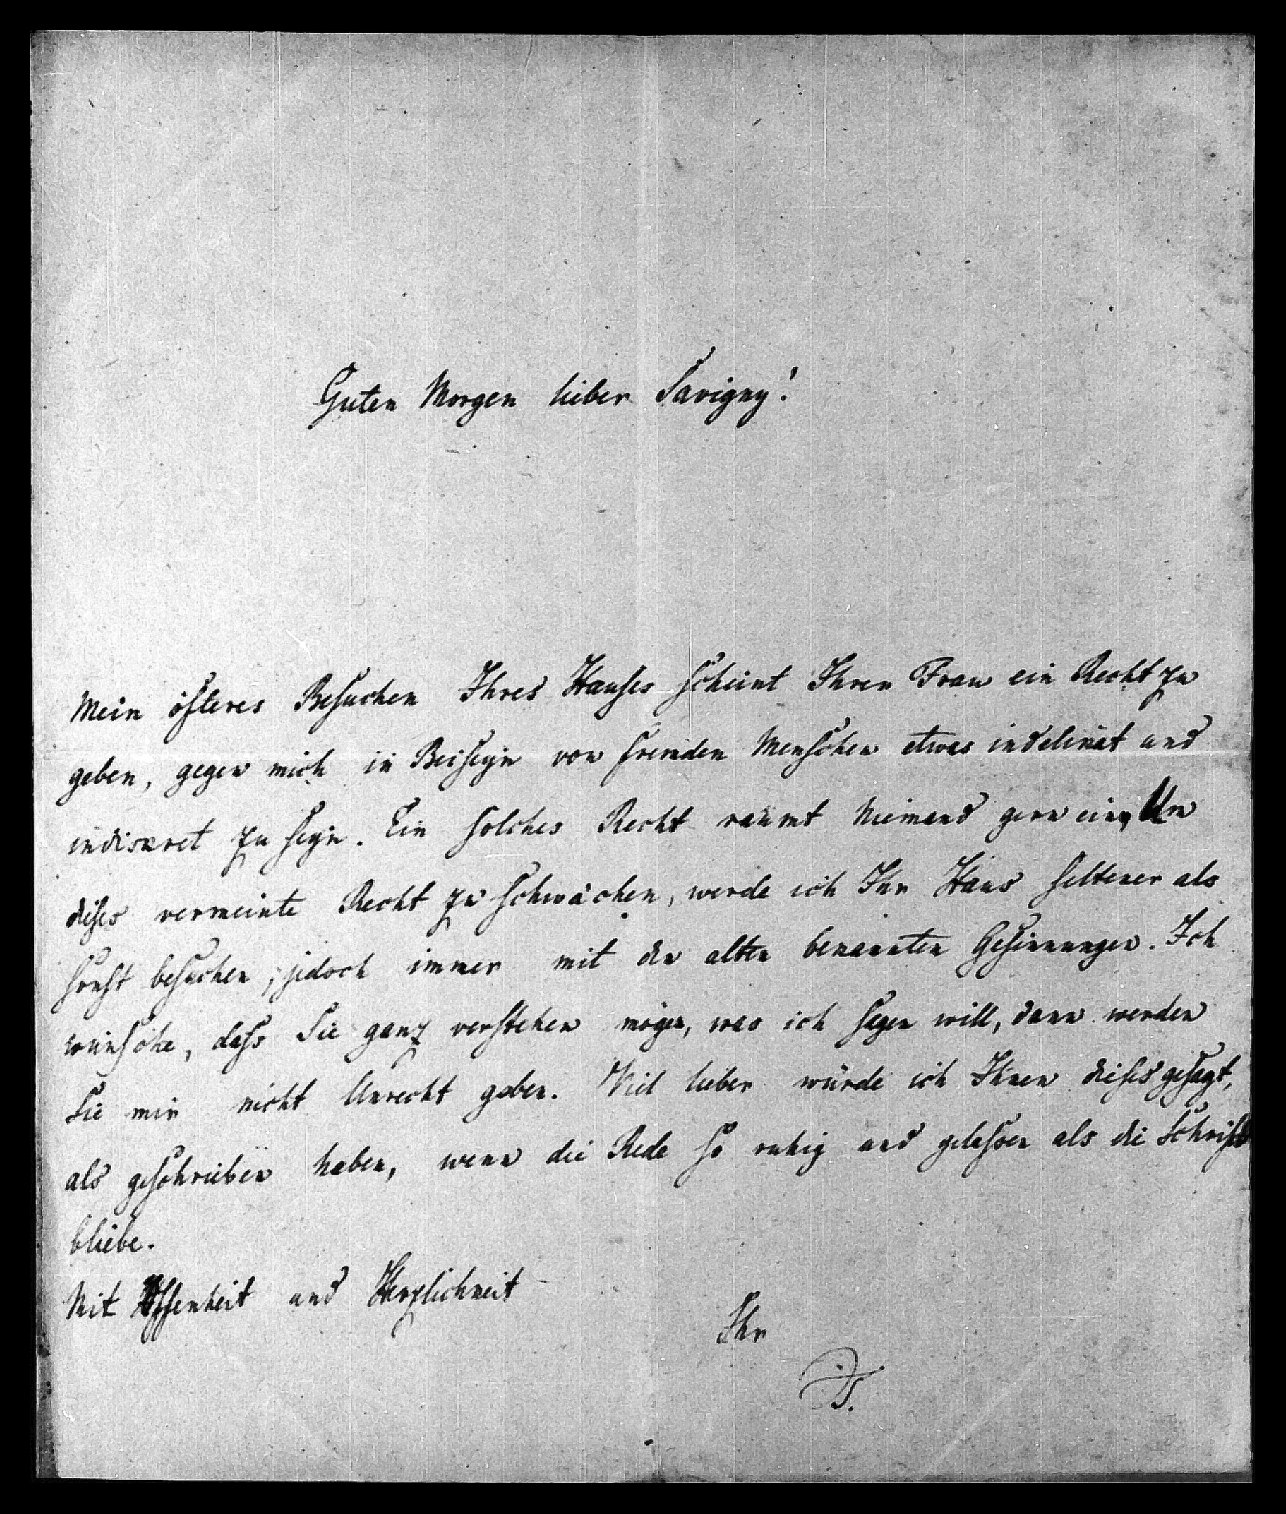 Guten Morgen lieber Savigny!
Mein öfteres Besuchen Ihres Hauses scheint Ihrer Frau ein Recht zu
geben, gegen mich in Beiseyn von fremden Menschen etwas indelicat und
indiscret zu seyn. Ein solches Recht räumt Niemand gern ein, Um
dieses vermeinte Recht zu schwächen, werde ich Ihr Haus seltener als
sonst besuchen, jedoch immer mit den alten bekannten Gesinnungen. Ich
wünsche, dass Sie ganz verstehen mögen, was ich sagen will, dann werden
Sie mir nicht Unrecht geben. Viel lieber würde ich Ihnen dieses gesagt,
als geschrieben haben, wenn die Rede so ruhig und gelassen als die Schrift
bliebe.
Mit Offenheit und Herzlichkeit
Ihr